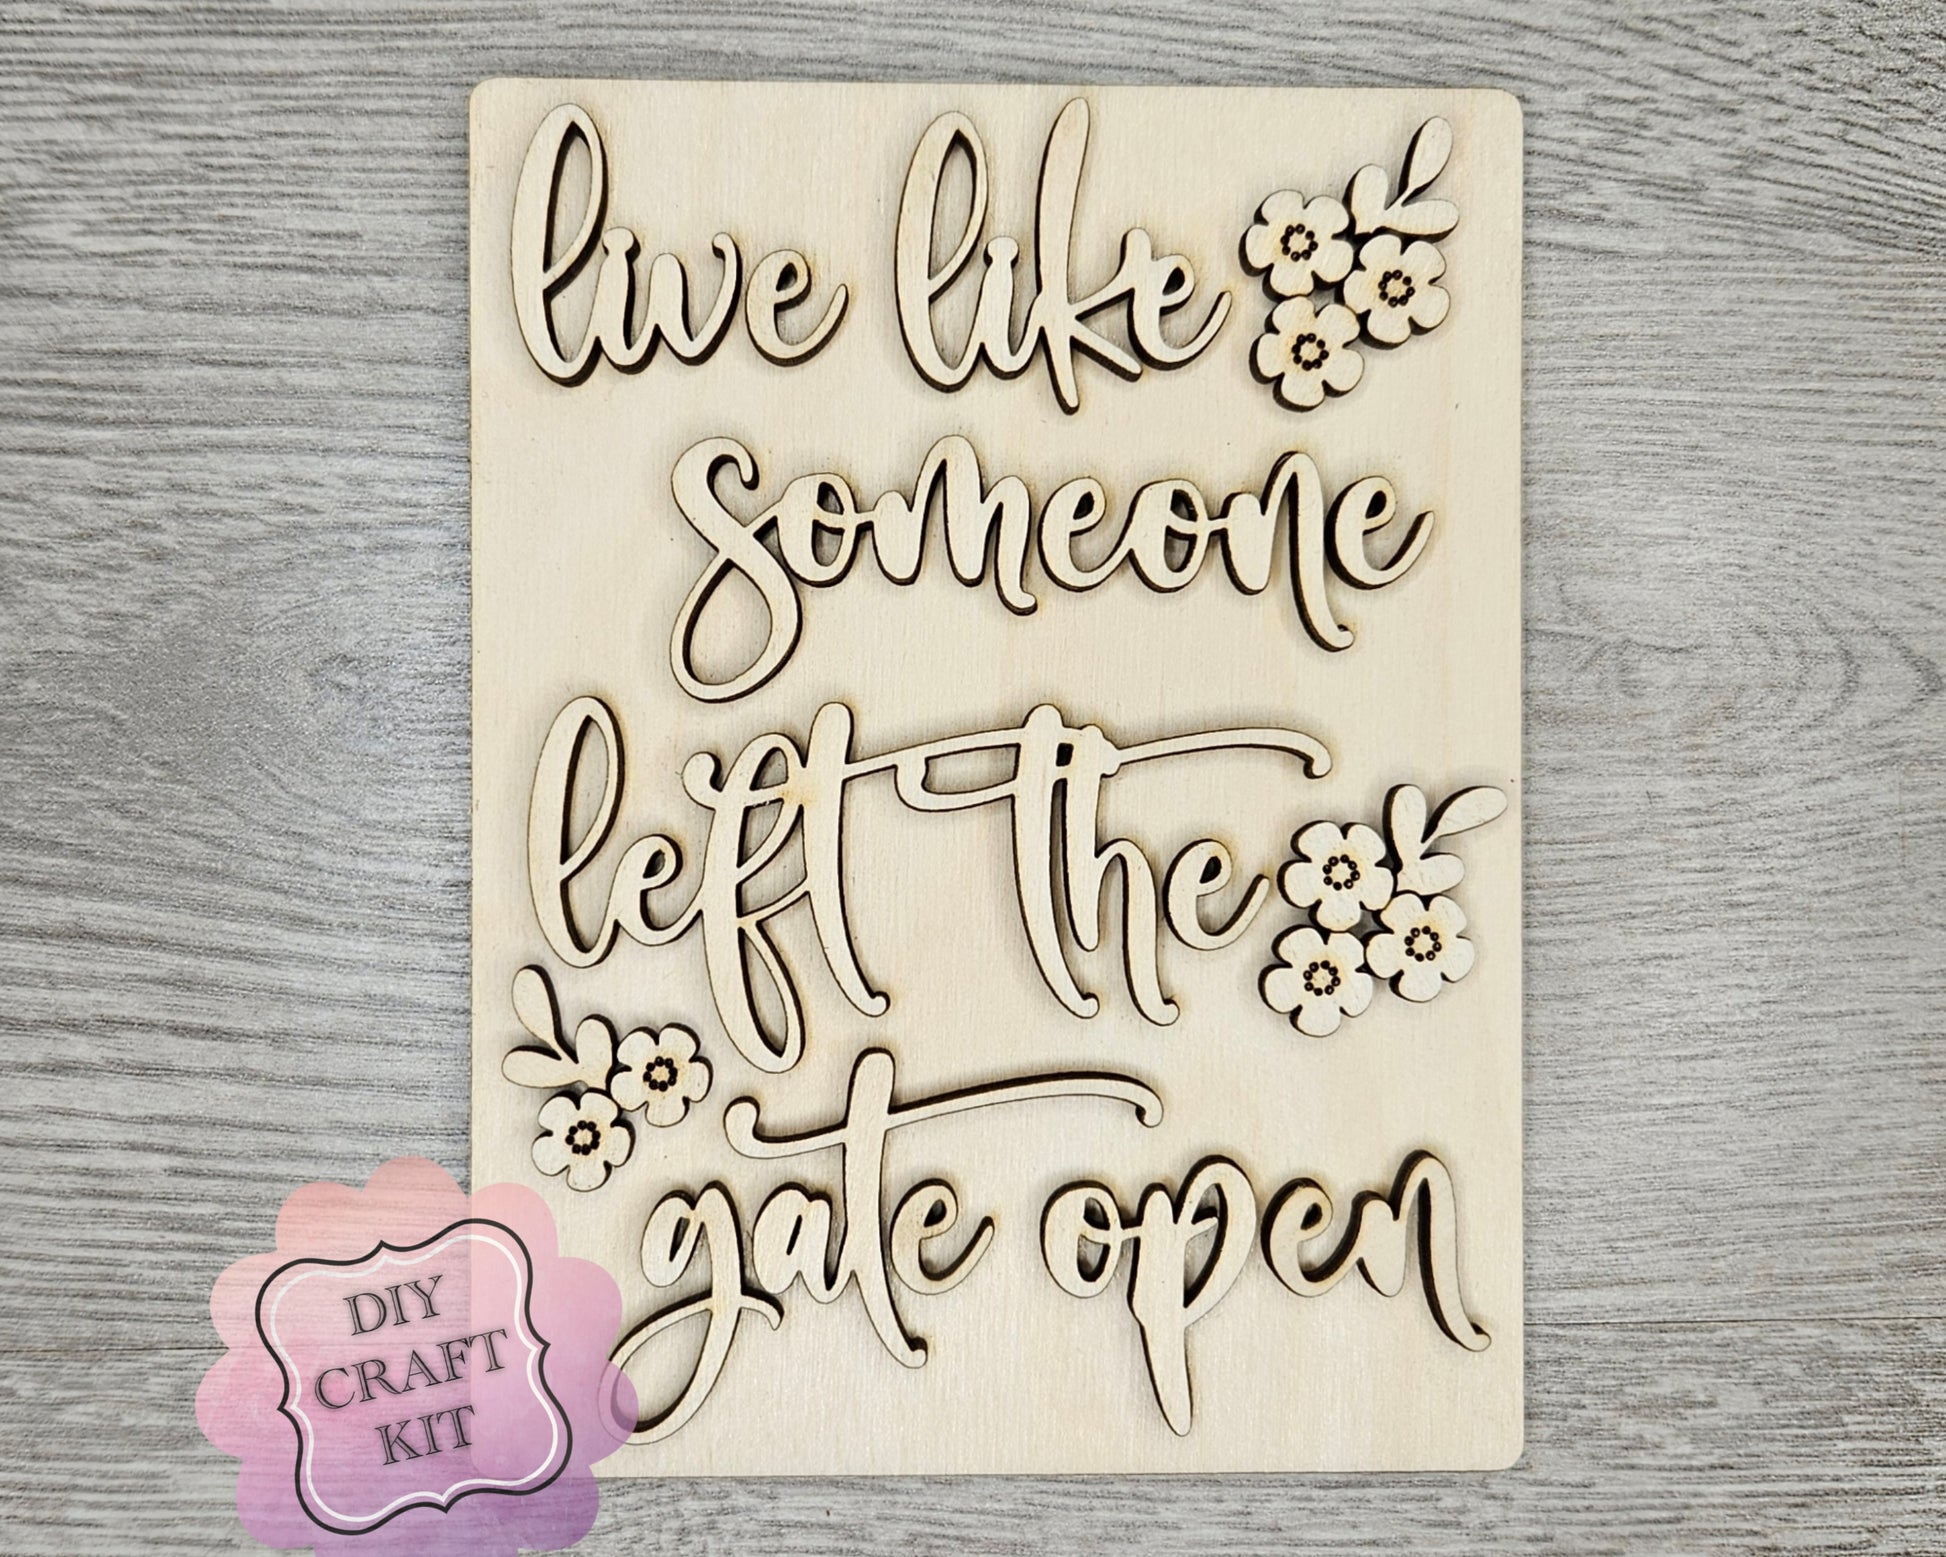 live like
someone
left the
gate open
DIY
CRAFT
KIT